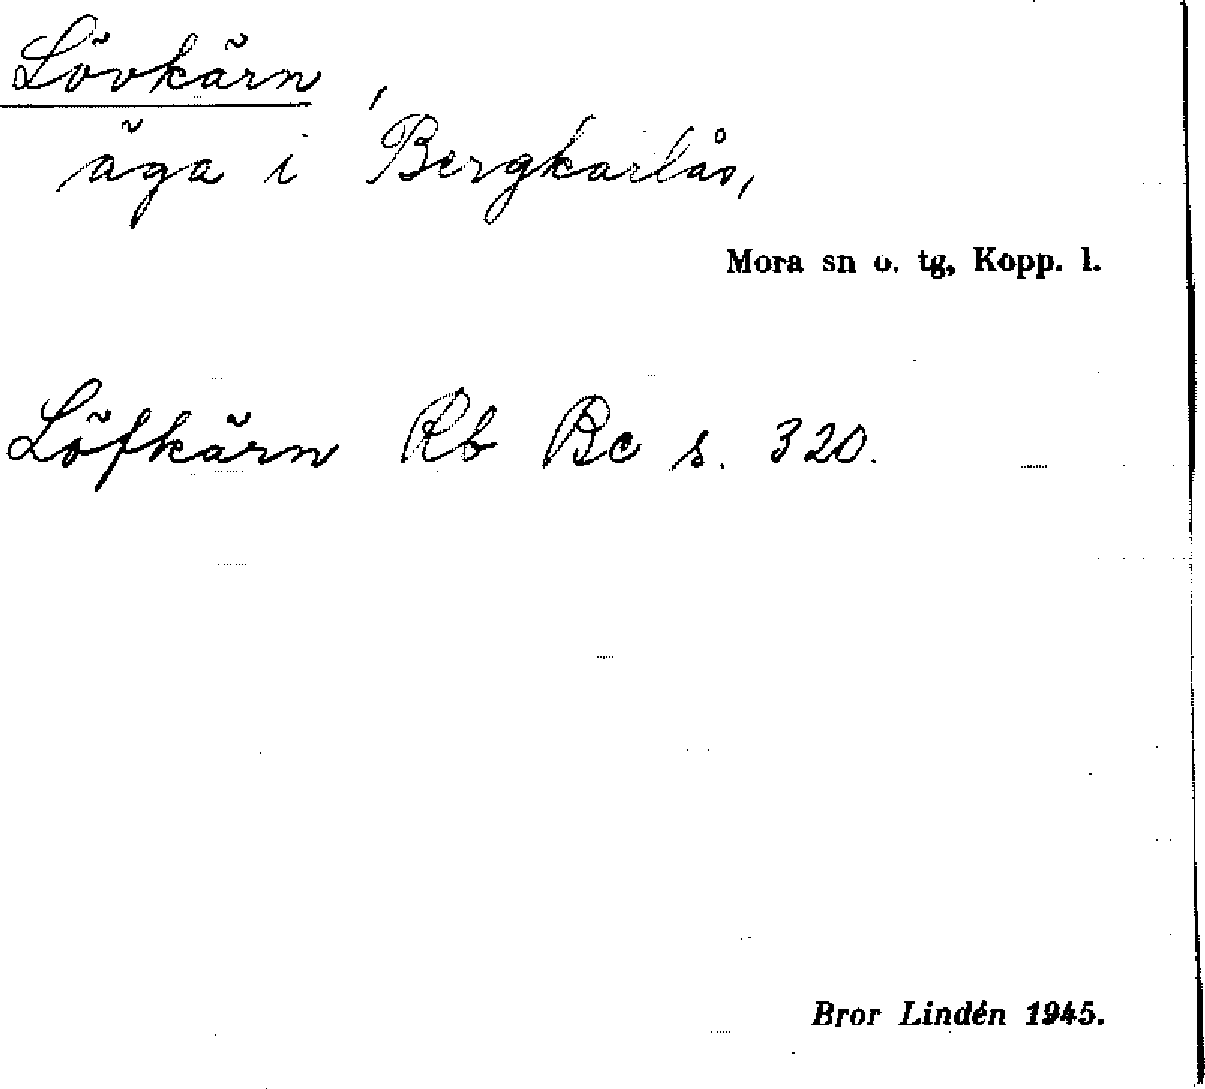 Lövkärn,
äga i Bergkarlås,
Mora sn o. tg, Kopp. l.
Löfkärn Rb Bc s. 320.
Bror Lindén 1945.